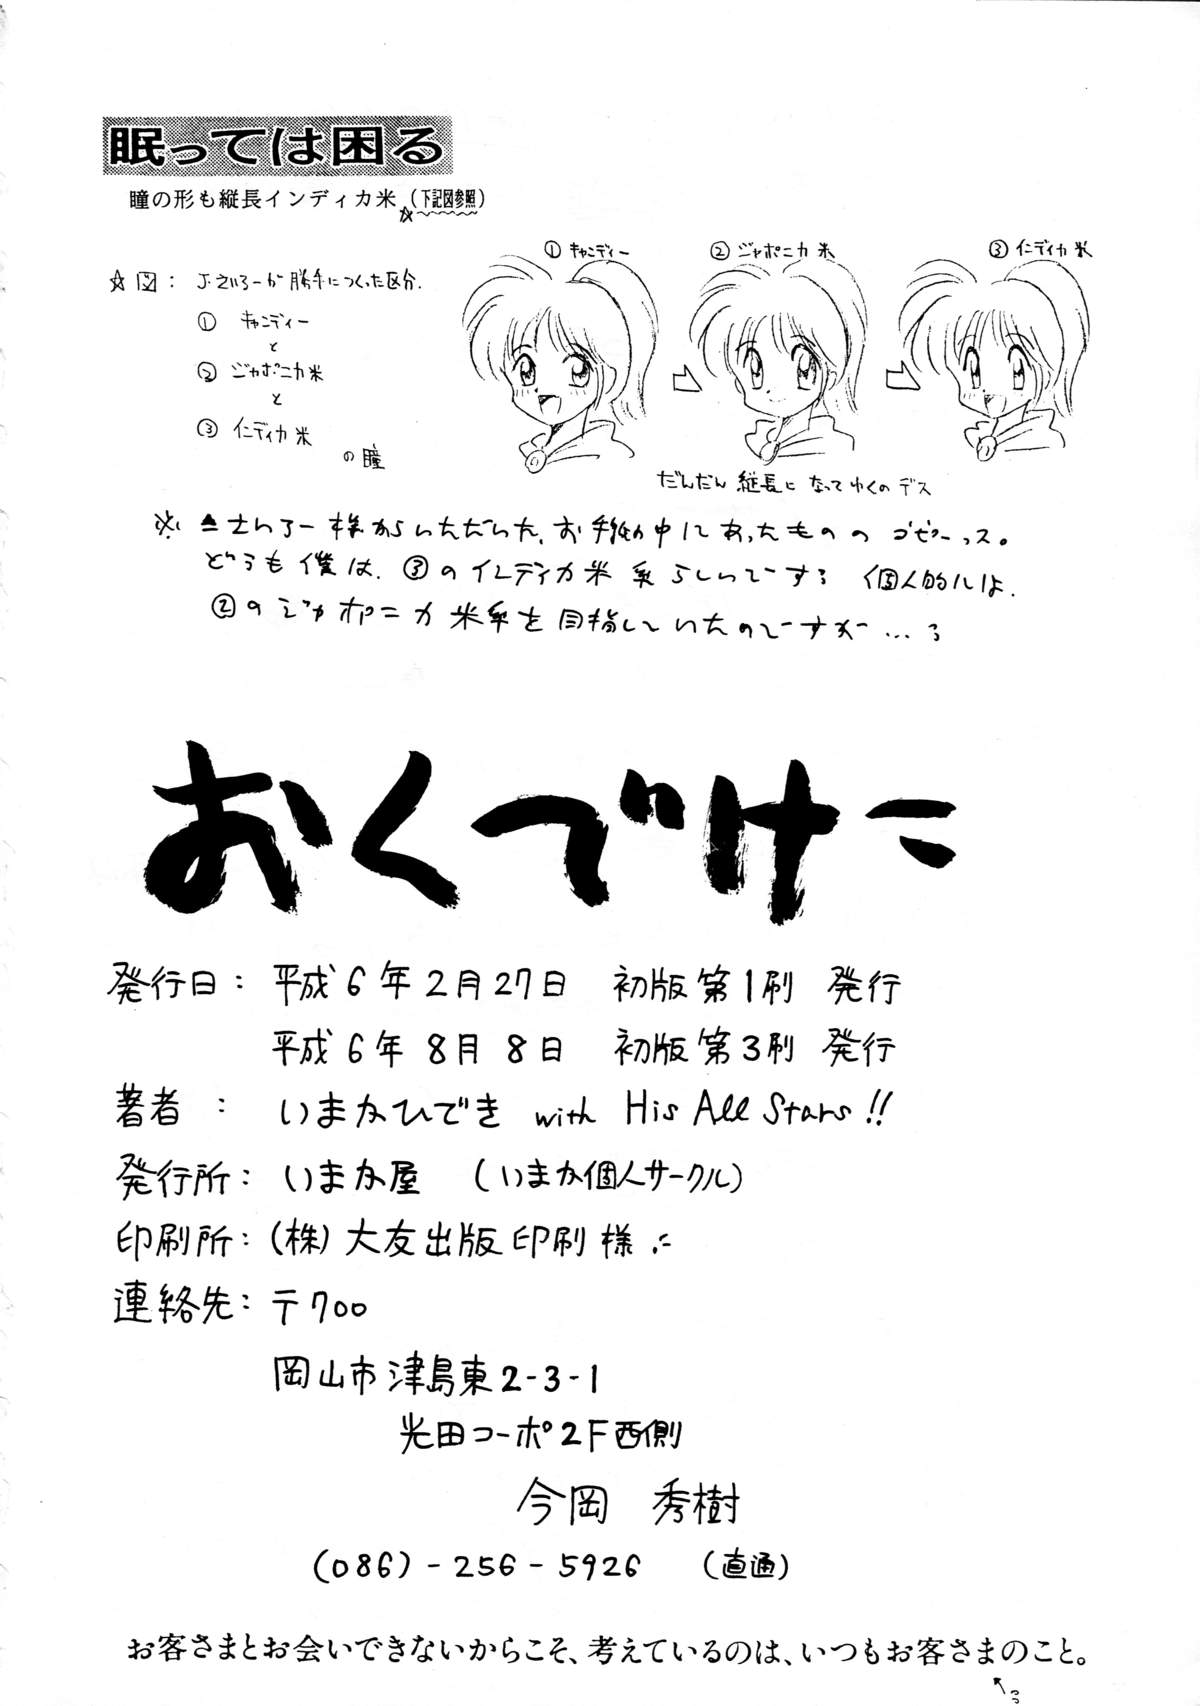 眠っては困る
瞳の形も縦長インディカ米(下記図参照)
☆図: J・さいろーが勝手につくった区分.
① キャンディー
と
② ジャポニカ米
と
③ インディカ米
の瞳
① キャンディー
② ジャポニカ米
③ インディカ米
だんだん縦長になってゆくのデス
※ さいろー様からいただいた、お手紙の中にあったもの
どうも僕は、③のインディカ米系らしいです 個人的には、
②のジャポニカ米系を目指していたのですが…
おくづけ
発行日: 平成6年2月27日 初版第1刷 発行
平成6年8月8日 初版第3刷 発行
著者: いまかひでき with His All Stars!!
発行所: いまか屋 (いまか個人サークル)
印刷所: (株)大友出版印刷様
連絡先: 〒700
岡山市津島東2-3-1
光田コーポ2F西側
今岡 秀樹
(086)-256-5926 (直通)
お客さまとお会いできないからこそ、考えているのは、いつもお客さまのこと。